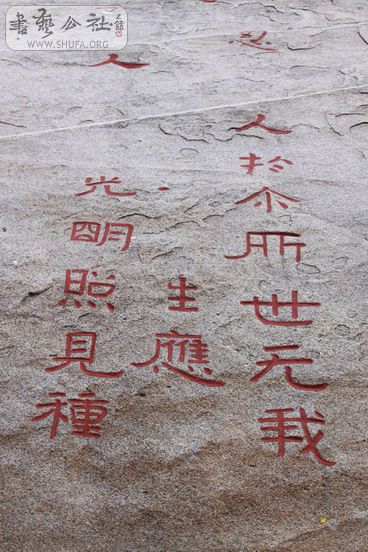 書藝公社
WWW.SHUFA.ORG
忍人於尒所世无我
生應
人光明照見種